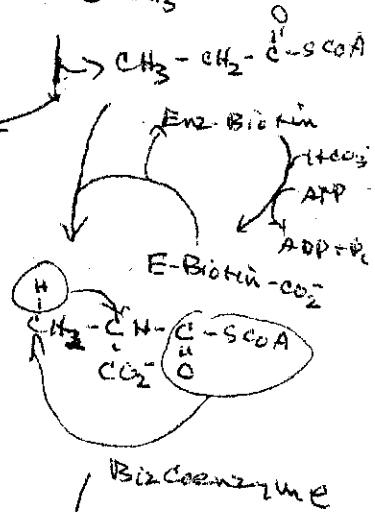 O
CH3 - CH2 - C - SCOA
Enz-Biotin
HCO3-
ATP
ADP + Pi
E-Biotin-CO2-
H
CH2 - C H - C - SCOA
CO2- O
B12 Coenzyme